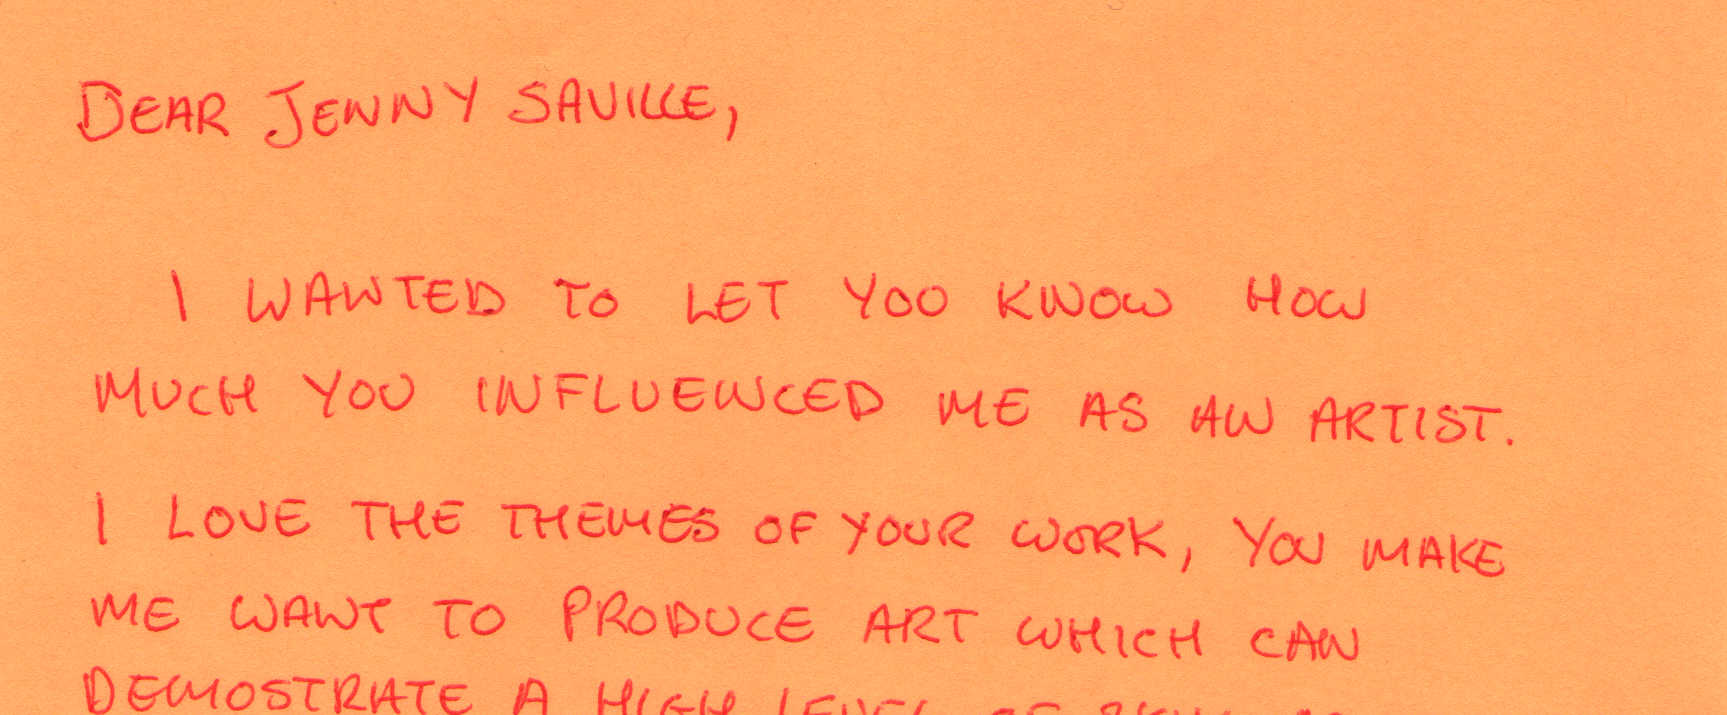 DEAR JENNY SAVILLE,
I WANTED TO LET YOU KNOW HOW
MUCH YOU INFLUENCED ME AS AN ARTIST.
I LOVE THE THEMES OF YOUR WORK, YOU MAKE
ME WANT TO PRODUCE ART WHICH CAN
DEMOSTRATE A HIGH LEVEL OF